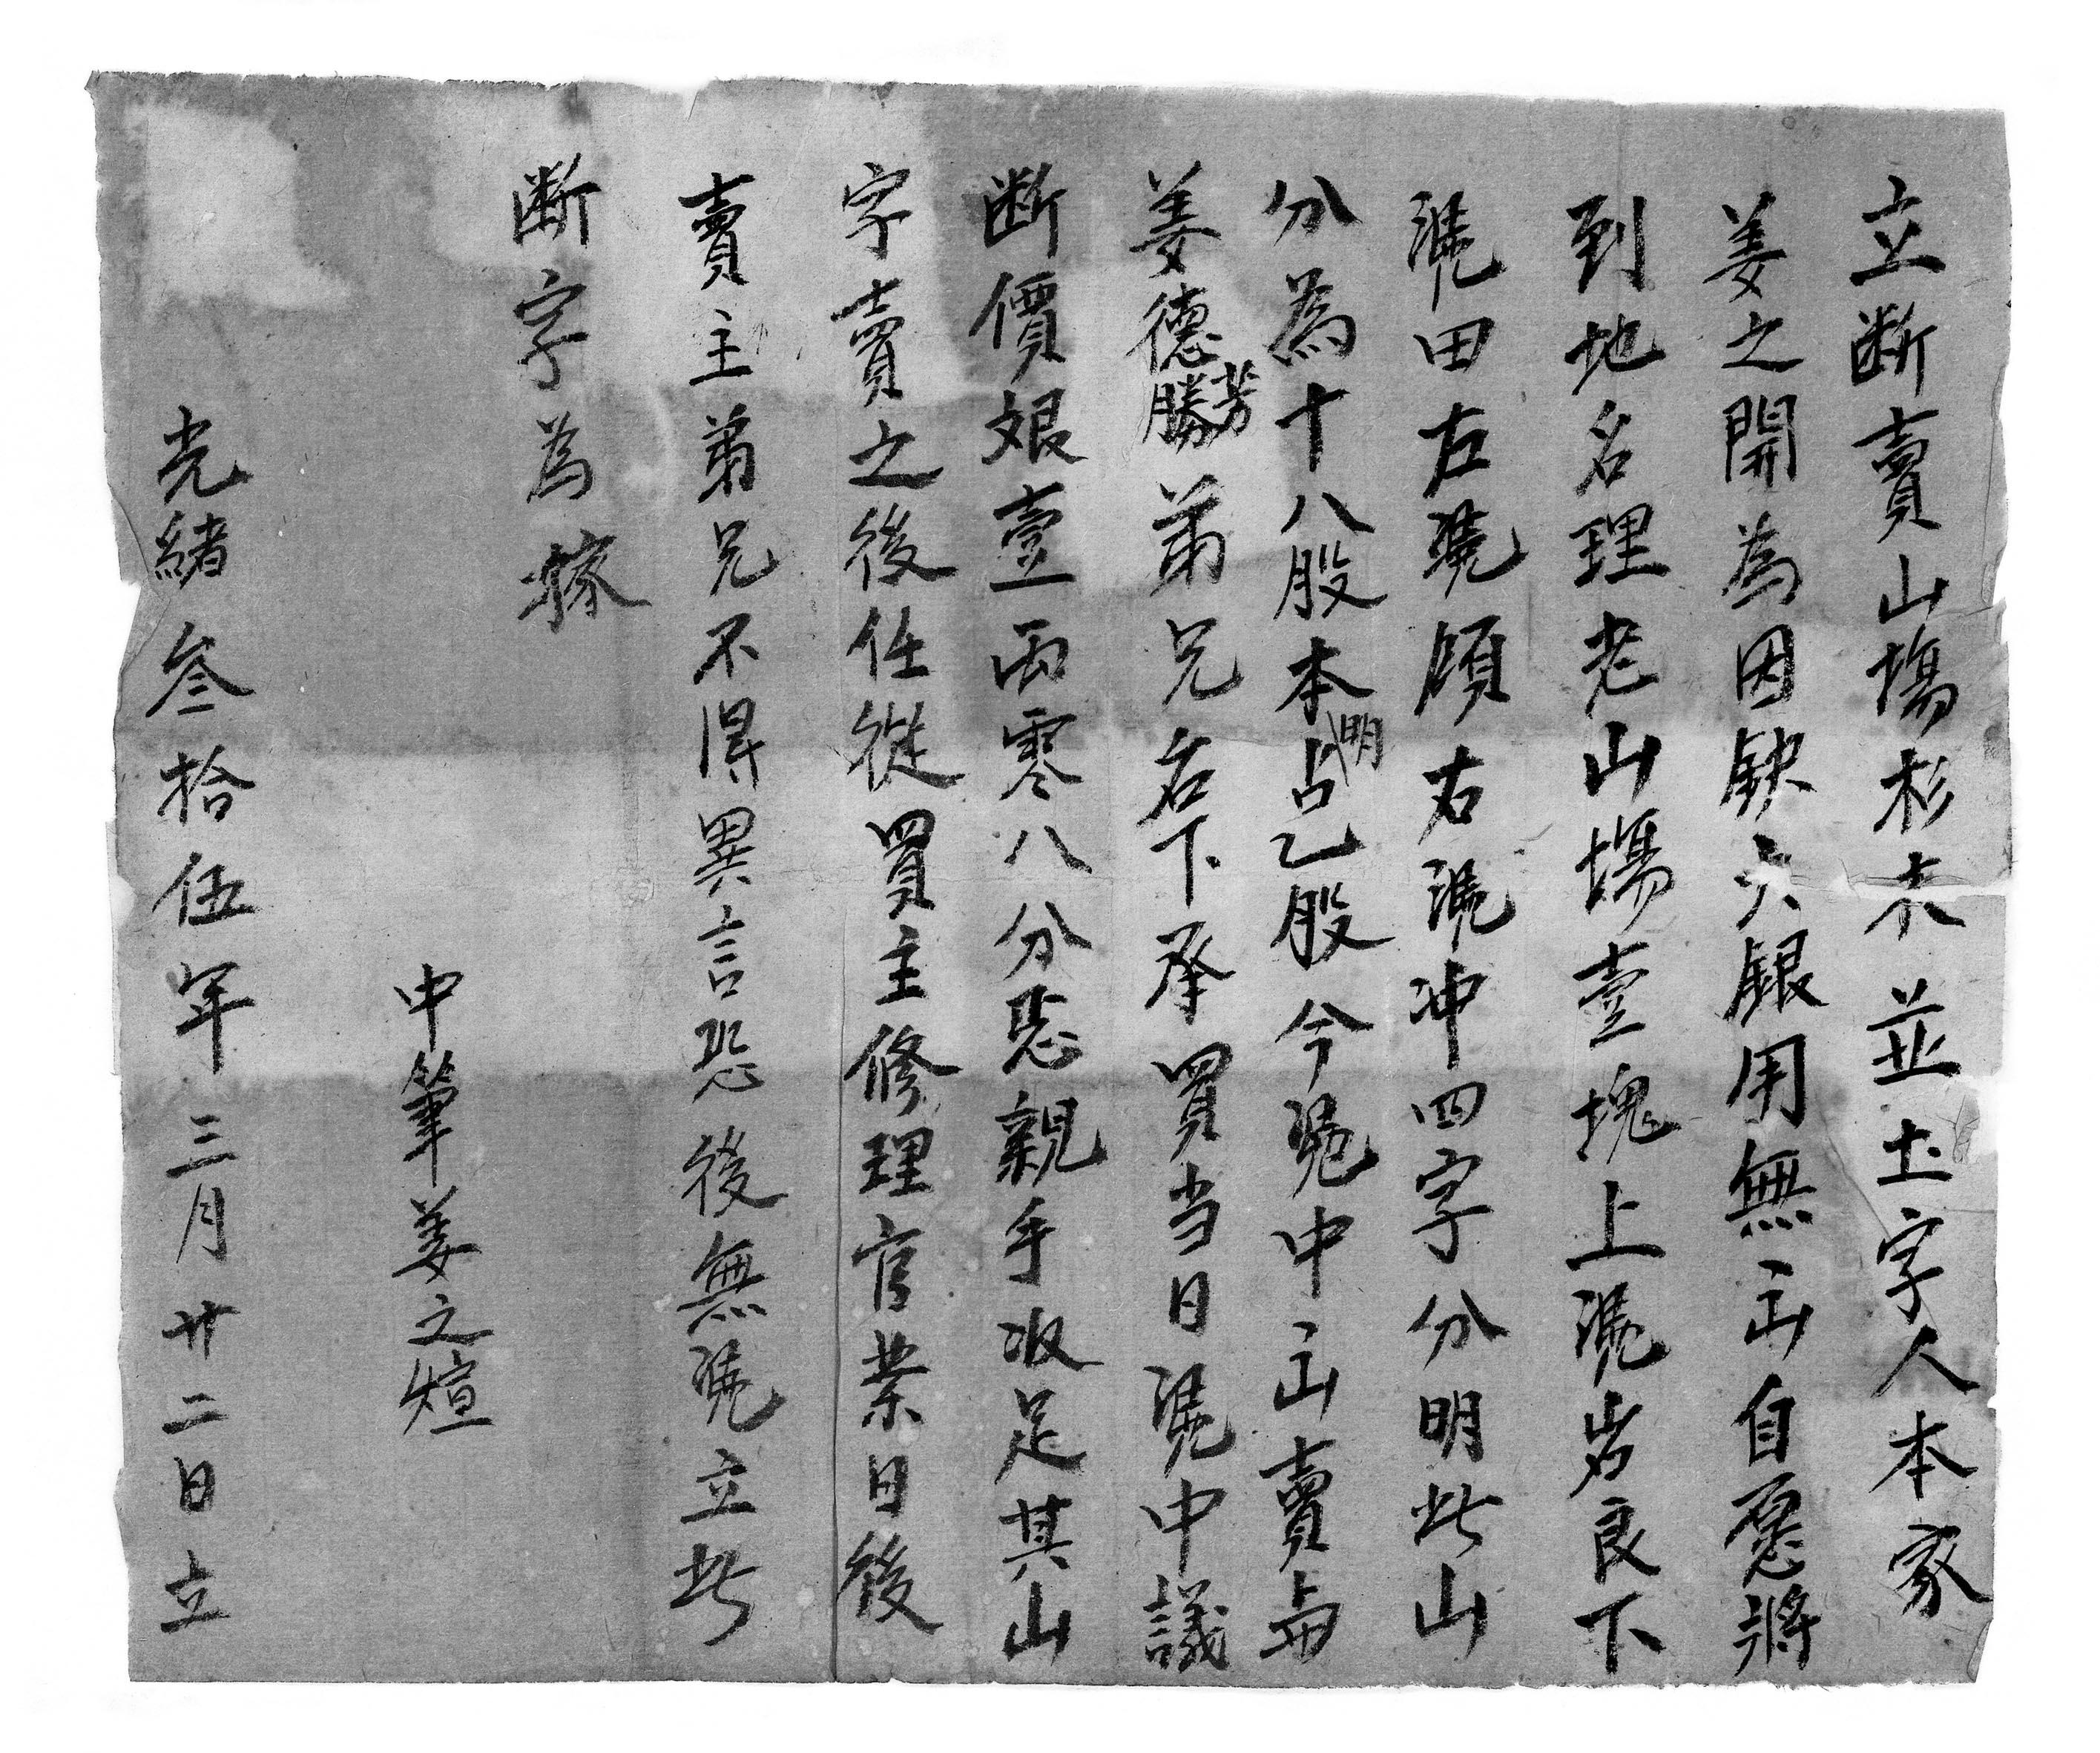 立断賣山塲杉木並土字人本家
姜之開為因缺少銀用無出自愿將
到地名理老山塲壹塊上凴岩良下
凴田左凴領右凴冲四字分明此山
分為十八股本明占乙股今凴中出賣與
姜德芳勝弟兄名下承買当日凴中議
断價艮壹両零八分悉親手收足其山
字賣之後任從買主修理官業日後
賣主弟兄不得異言恐後無凴立此
断字為據
中筆姜之煊
光緒叁拾伍年三月廿二日立